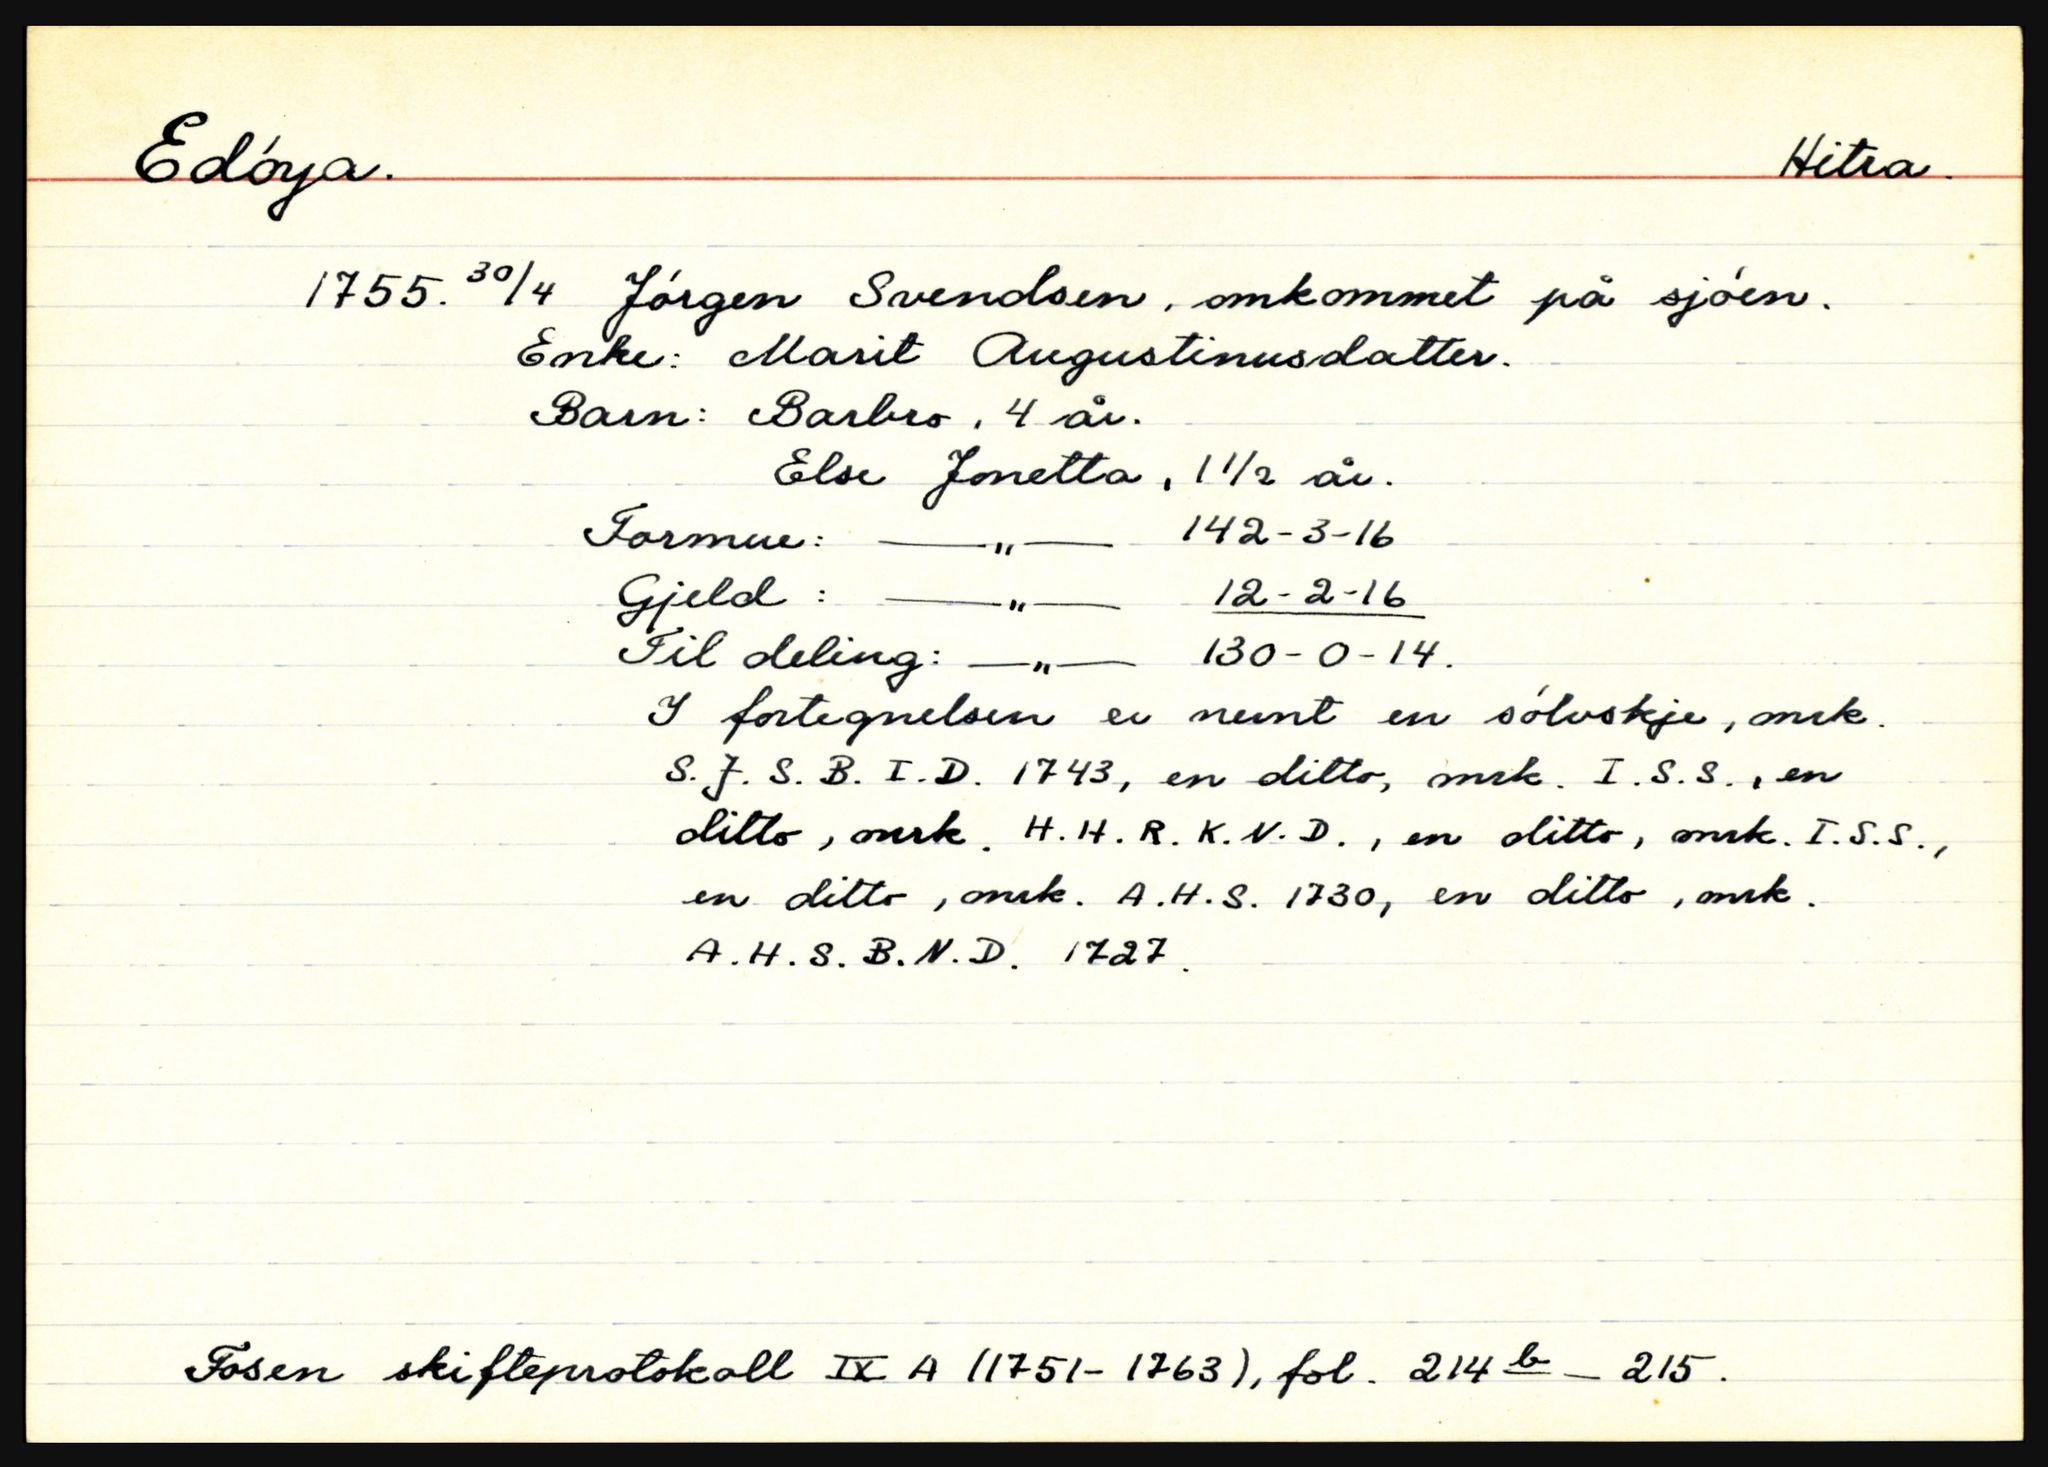 Edöya. Hitra.
1755. 30/4 Jörgen Svendsen, omkommet på sjöen.
Enke: Marit Augustinusdatter.
Barn: Barbro, 4 år.
Else Jonetta, 1 1/2 år.
Formue: —„— 142-3-16
Gjeld: —„— 12-2-16
Til deling: —„— 130-0-14.
I fortegnelsen er nevnt en sölvskje, mrk.
S. J. S. B. I. D. 1743, en ditto, mrk. I. S. S., en
ditto, mrk. H. H. R. K. N. D., en ditto, mrk. I. S. S.,
en ditto, mrk. A. H. S. 1730, en ditto, mrk.
A. H. S. B. N. D. 1727.
Fosen skifteprotokoll IX A (1751-1763), fol. 214 b - 215.